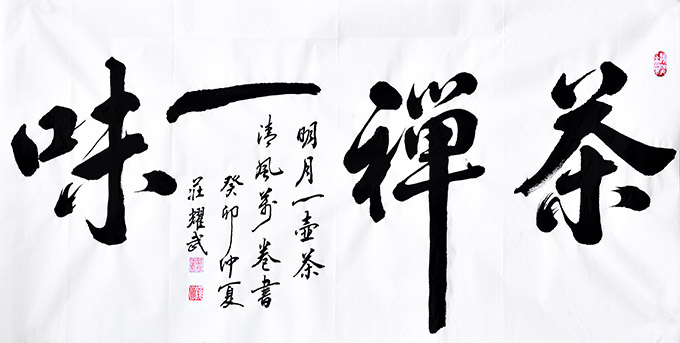 茶禪一味
明月一壷茶
清風萬卷書
癸卯仲夏
莊耀武